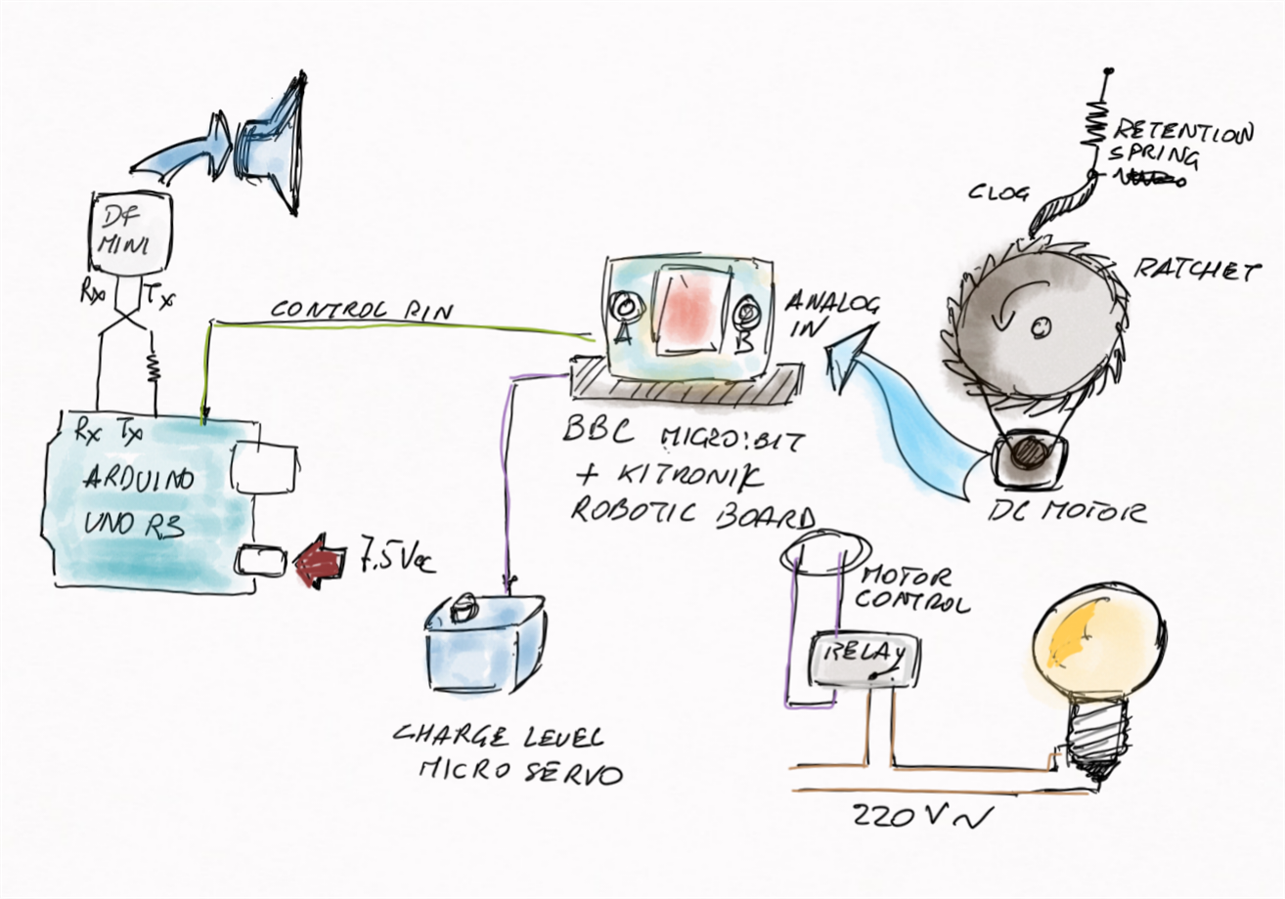 DF
MINI
Rx Tx
Rx Tx
ARDUINO
UNO R3
7.5Vcc
CONTROL PIN
A
B
BBC MICRO:BIT
+ KITRONIK
ROBOTIC BOARD
ANALOG
IN
CLOG
RETENTION
SPRING
RATCHET
DC MOTOR
CHARGE LEVEL
MICRO SERVO
MOTOR
CONTROL
RELAY
220 V ~